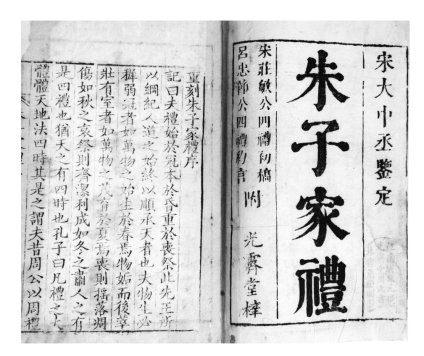 宋大中丞鑒定
朱子家禮
宋莊敏公四禮初稿
呂忠節公四禮約言
附
光霽堂梓
重刻朱子家禮序
記曰夫禮始於冠本於昏重於喪祭此先王所
以綱紀人道之始終以順承天者也夫物生必
穉弱冠者如萬物之始生於春焉物始而後莘
壯有室者如萬物之茂育於夏焉喪則搖落凋
傷如秋之哀祭則齊潔利成如冬之肅人之有
是四禮也猶天之有四時也孔子曰凡禮之大
體體天地法四時其是之謂夫昔周公以周禮